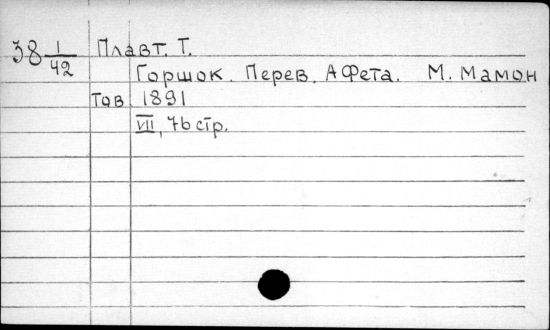 38 1/42 Плавт. Т.
Горшок. Перев. А Фета. М. Мамон
тов 1891
VII, 76 стр.